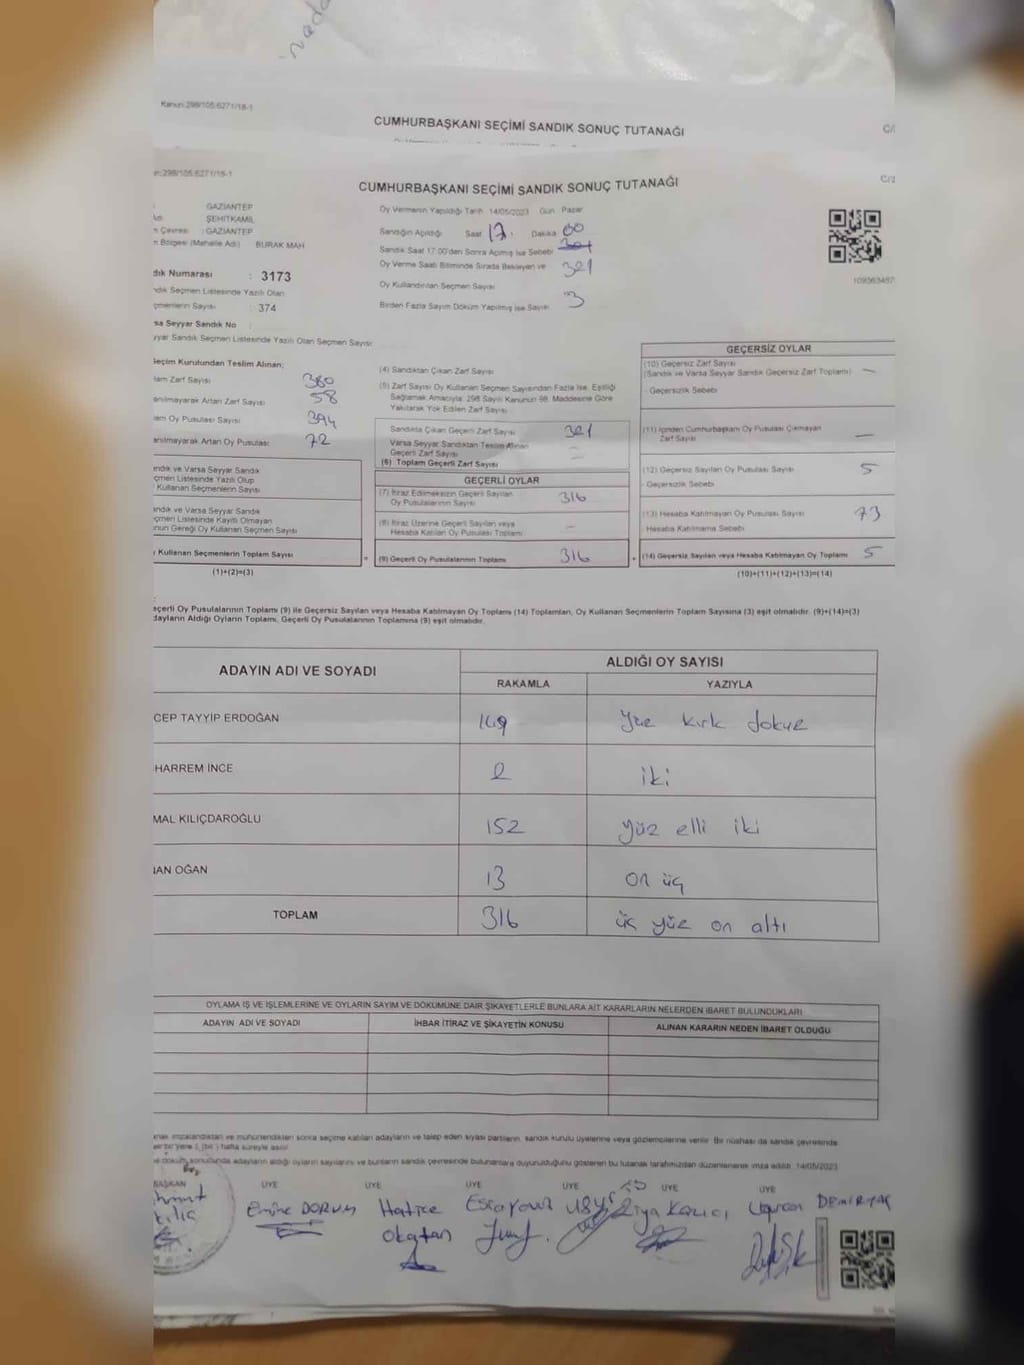 Kanun:298/105:6271/18-1
CUMHURBAŞKANI SEÇİMİ SANDIK SONUÇ TUTANAĞI
C/
n:298/105:6271/18-1
CUMHURBAŞKANI SEÇİMİ SANDIK SONUÇ TUTANAĞI
C/2
: GAZİANTEP
ŞEHİTKAMİL
n Çevresi : GAZİANTEP
n Bölgesi (Mahalle Adı) BURAK MAH
Oy Vermenin Yapıldığı Tarih 14/05/2023 Gün Pazar
Sandığın Açıldığı Saat 17. Dakika 00
Sandık Saat 17:00'den Sonra Açımış İse Sebebi
Oy Verme Saati Bitiminde Sırada Bekleyen ve 321
Oy Kullandırılan Seçmen Sayısı
Birden Fazla Sayım Döküm Yapılmış İse Sayısı 3
dık Numarası : 3173
ndık Seçmen Listesinde Yazılı Olan
çmenlerin Sayısı : 374
sa Seyyar Sandık No
yyar Sandık Seçmen Listesinde Yazılı Olan Seçmen Sayısı
eçim Kurulundan Teslim Alınan;
lam Zarf Sayısı 380
anılmayarak Artan Zarf Sayısı 58
am Oy Pusulası Sayısı 394
anılmayarak Artan Oy Pusulası 72
ndık ve Varsa Seyyar Sandık
çmen Listesinde Yazılı Olup
Kullanan Seçmenlerin Sayısı
ndık ve Varsa Seyyar Sandık
çmen Listesinde Kayıtlı Olmayan
nun Gereği Oy Kullanan Seçmen Sayısı
Kullanan Seçmenlerin Toplam Sayısı
(1)+(2)=(3)
(4) Sandıktan Çıkan Zarf Sayısı
(5) Zarf Sayısı Oy Kullanan Seçmen Sayısından Fazla İse, Eşitliği
Sağlamak Amacıyla; 298 Sayılı Kanunun 98. Maddesine Göre
Yakılarak Yok Edilen Zarf Sayısı
Sandıkta Çıkan Geçerli Zarf Sayısı 321
Varsa Seyyar Sandıktan Teslim Alınan
Geçerli Zarf Sayısı
(6) Toplam Geçerli Zarf Sayısı
GEÇERLİ OYLAR
(7) İtiraz Edilmeksizin Geçerli Sayılan
Oy Pusulalarının Sayısı 316
(8) İtiraz Üzerine Geçerli Sayılan veya
Hesaba Katılan Oy Pusulası Toplamı -
(9) Geçerli Oy Pusulalarının Toplamı 316
GEÇERSİZ OYLAR
(10) Geçersiz Zarf Sayısı
(Sandık ve Varsa Seyyar Sandık Geçersiz Zarf Toplamı) -
- Geçersizlik Sebebi
(11) İçinden Cumhurbaşkanı Oy Pusulası Çıkmayan
Zarf Sayısı -
(12) Geçersiz Sayılan Oy Pusulası Sayısı 5
- Geçersizlik Sebebi
(13) Hesaba Katılmayan Oy Pusulası Sayısı 73
- Hesaba Katılmama Sebebi
(14) Geçersiz Sayılan veya Hesaba Katılmayan Oy Toplamı 5
(10)+(11)+(12)+(13)=(14)
eçerli Oy Pusulalarının Toplamı (9) ile Geçersiz Sayılan veya Hesaba Katılmayan Oy Toplamı (14) Toplamları, Oy Kullanan Seçmenlerin Toplam Sayısına (3) eşit olmalıdır. (9)+(14)=(3)
dayların Aldığı Oyların Toplamı, Geçerli Oy Pusulalarının Toplamına (9) eşit olmalıdır.
ADAYIN ADI VE SOYADI
ALDIĞI OY SAYISI
RAKAMLA YAZIYLA
CEP TAYYİP ERDOĞAN 149 Yüz kırk dokuz
HARREM İNCE 2 iki
MAL KILIÇDAROĞLU 152 yüz elli iki
NAN OĞAN 13 on üç
TOPLAM 316 üç yüz on altı
OYLAMA İŞ VE İŞLEMLERİNE VE OYLARIN SAYIM VE DÖKÜMÜNE DAİR ŞİKAYETLERLE BUNLARA AİT KARARLARIN NELERDEN İBARET BULUNDUKLARI
ADAYIN ADI VE SOYADI İHBAR İTİRAZ VE ŞİKAYETİN KONUSU ALINAN KARARIN NEDEN İBARET OLDUĞU
anak imzalandıktan ve mühürlendikten sonra seçime katılan adayların ve talep eden siyasi partilerin, sandık kurulu üyelerine veya gözlemcilerine verilir. Bir nüshası da sandık çevresinde
bir yere 1 (bir ) hafta süreyle asılır.
e döküm sonucunda adayların aldığı oyların sayılarını ve bunların sandık çevresinde bulunanlara duyurulduğunu gösteren bu tutanak tarafımızdan düzenlenerek imza edildi. 14/05/2023
BAŞKAN ÜYE ÜYE ÜYE ÜYE ÜYE ÜYE
Emine DORUM Hatice Ziya Kazıcı DEMİRTAŞ